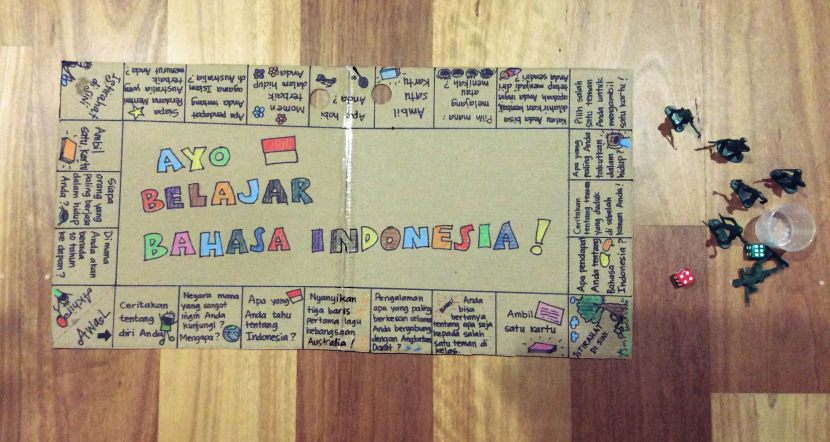 AYO
BELAJAR
BAHASA INDONESIA !
Akhir
AWAL
Ceritakan
tentang
diri Anda
Negara mana
yang sangat
ingin Anda
kunjungi ?
Mengapa ?
Apa yang
Anda tahu
tentang
Indonesia ?
Nyanyikan
tiga baris
pertama lagu
kebangsaan
Australia !
Pengalaman
apa yang paling
berkesan selama
Anda bergabung
dengan Angkatan
Darat ?
Anda
bisa
bertanya
tentang apa saja
kepada salah
satu teman di
kelas.
Ambil
satu kartu
ISTIRAHAT
DI SINI
Apa pendapat
Anda tentang
Bahasa
Indonesia ?
Ceritakan
tentang teman
yang duduk
di sebelah
kanan Anda !
Apa yang
paling Anda
takutkan
dalam
hidup ?
Pilih salah
satu teman
Anda untuk
mengambil
satu kartu !
Kalau Anda bisa
dilahirkan kembali,
Anda ingin
tetap menjadi diri
Anda sendiri ?
Pilih mana :
melajang
atau
menikah ?
Ambil
satu
kartu
Apa
hobi
Anda ?
Momen
terbaik
dalam hidup
Anda
Apa pendapat
Anda tentang
agama Islam
di Australia ?
Siapa
Perdana Menteri
Australia yang
terbaik
menurut Anda ?
Istirahat
di sini
Ambil
satu kartu
Siapa
orang yang
paling berjasa
dalam hidup
Anda ?
Di mana
Anda akan
berada
10 tahun
ke depan ?